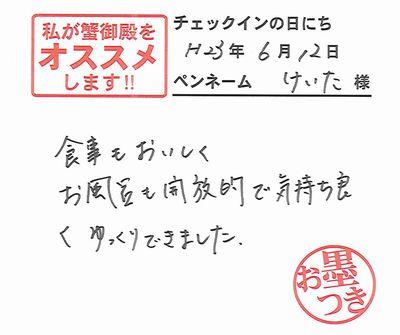 私が蟹御殿を
オススメ
します!!
チェックインの日にち
H23年 6月12日
ペンネーム けいた 様
食事もおいしく
お風呂も開放的で気持ち良
く ゆっくりできました.
お墨つき